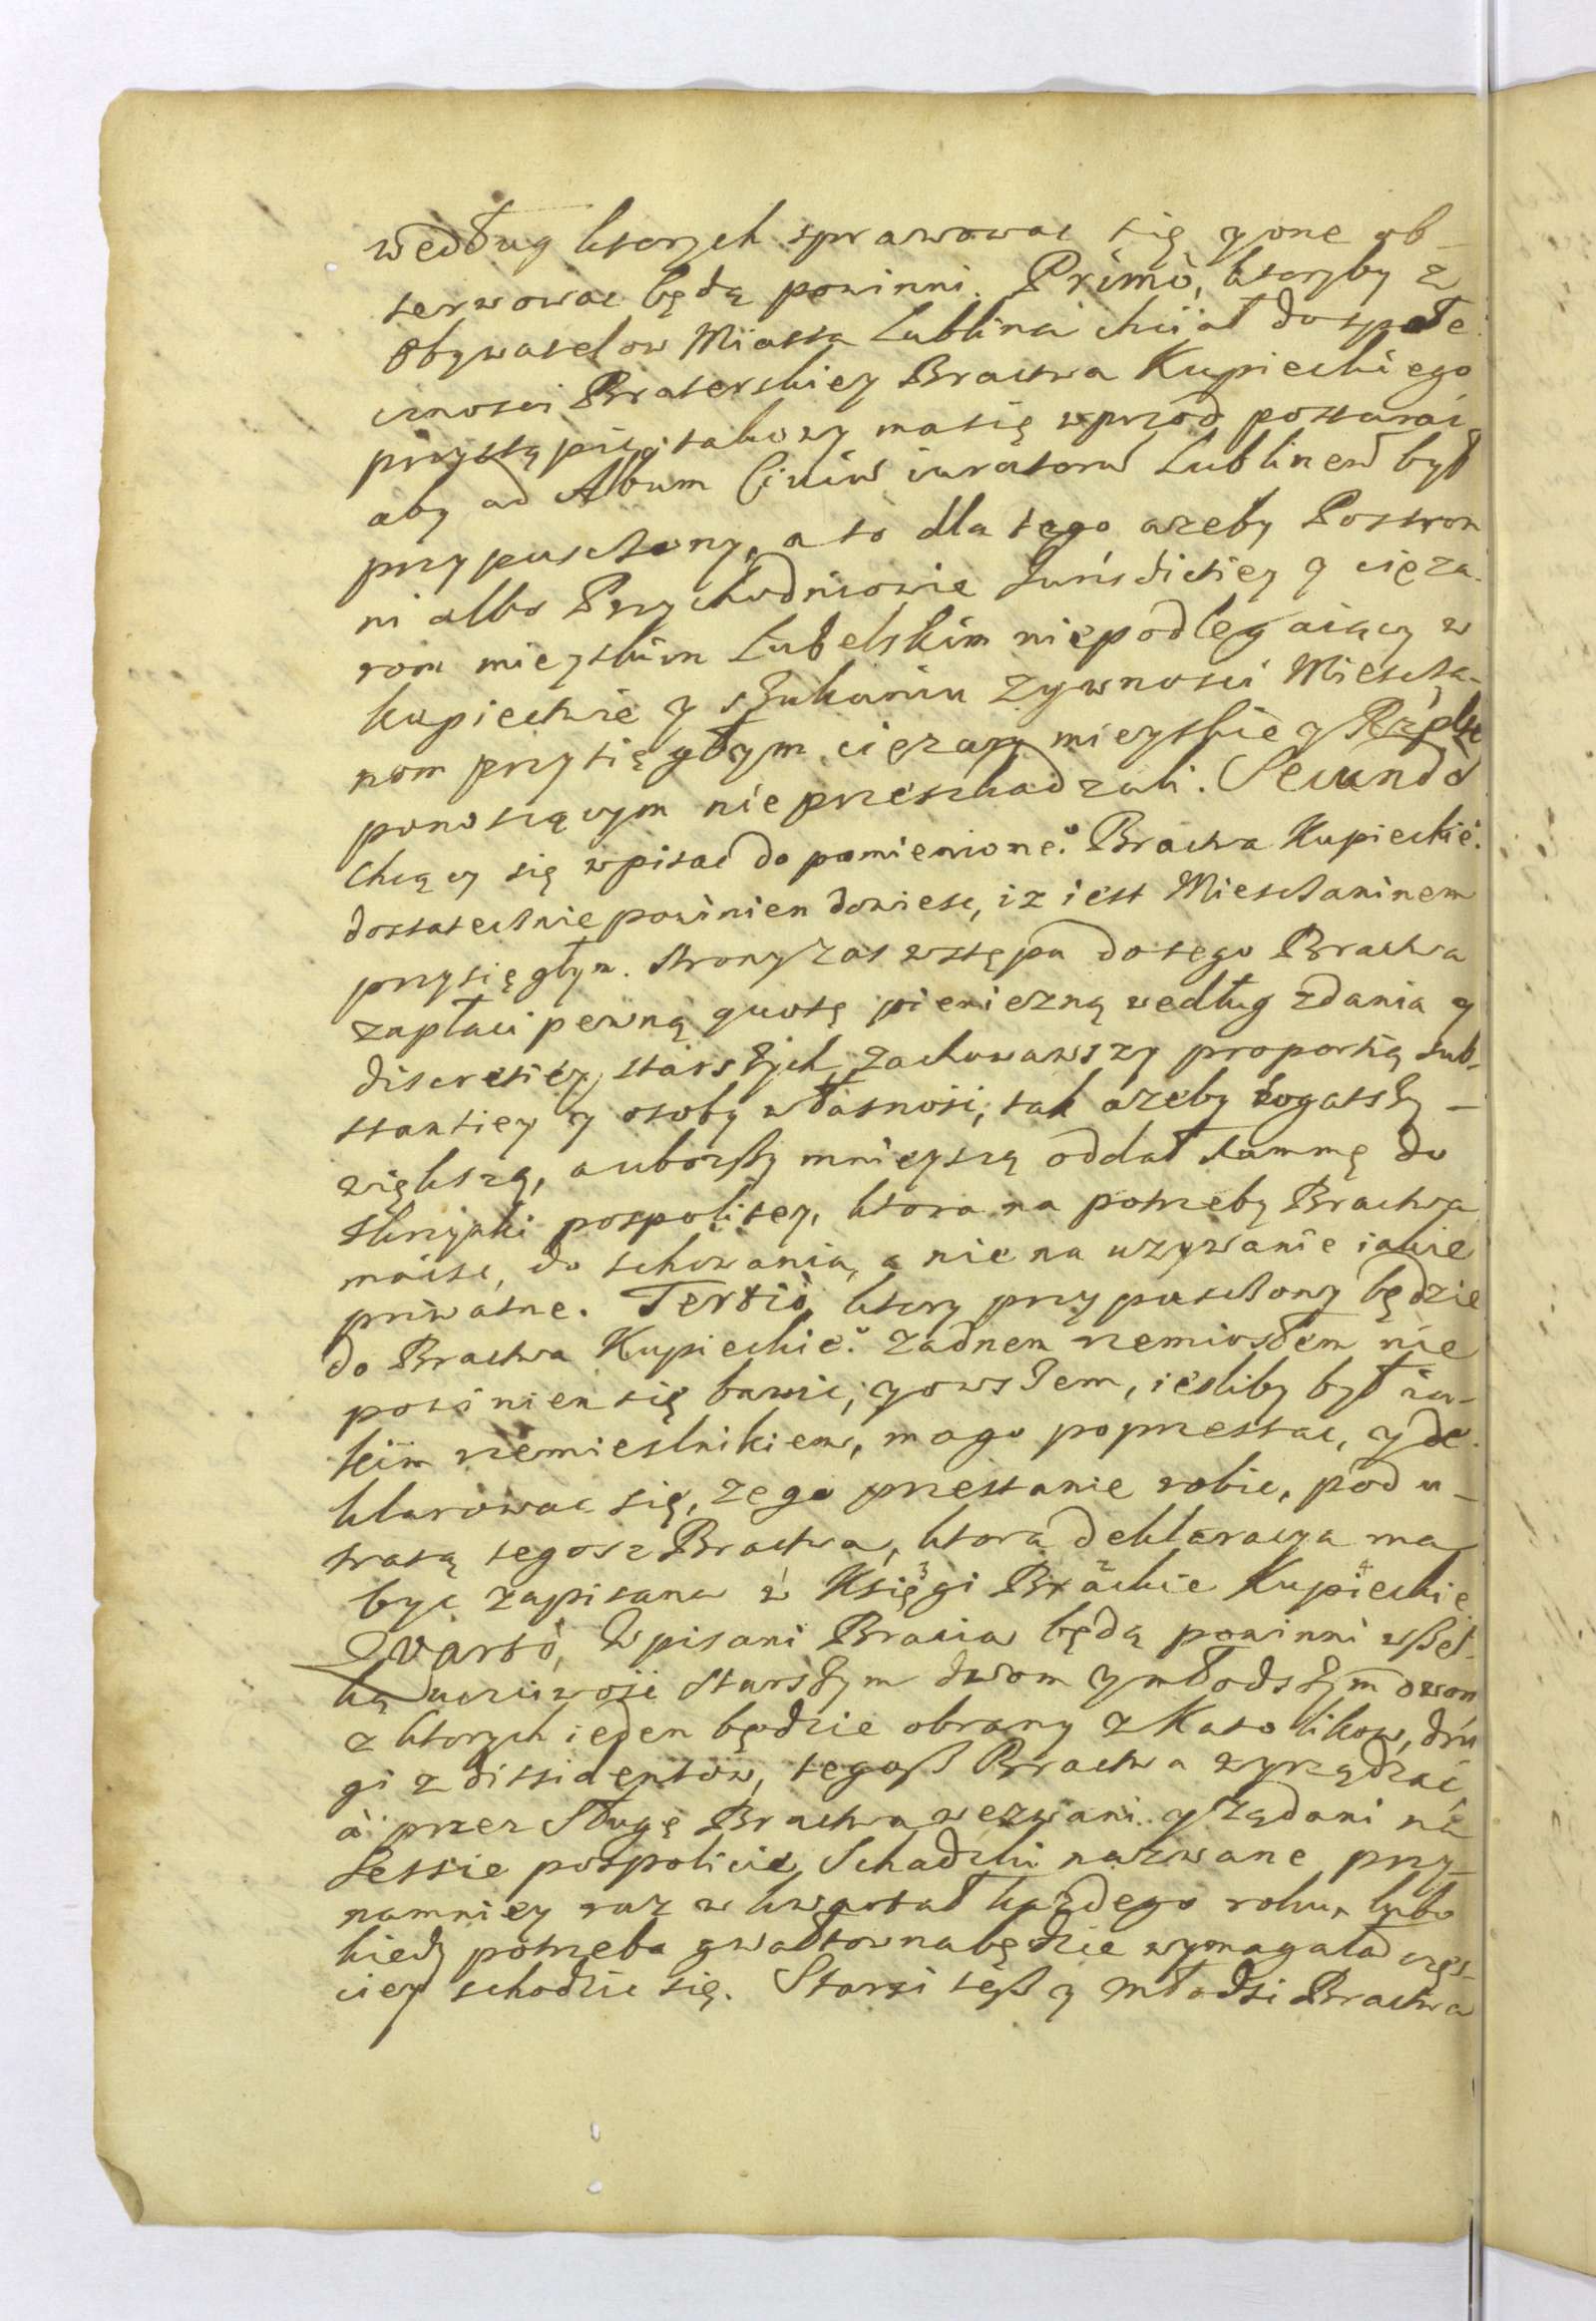 według ktorych sprawowac się y one ob-
serwowac będą powinni. Primò, ktoryby z
Obywatelow Miasta Lublina chciał do społe
cznosci Braterskiey Bractwa Kupieckiego
przystąpić, takowy ma się wprzod postarać,
aby ad Album Civiũ iuratorũ Lublineñ był
przypusczony, a to dla tego azeby Postron
ni albo Przychodniowie Jurisdictiey y cięża-
rom mieyskim Lubelskim niepodlegaiący w
kupiectwie y szukaniu zywnosci Miescza-
nom przysięgłym ciężary mieyskie y Rzplte
ponoszącym nieprzeszkadzali. Secundò
Chcący się wpisac do pomienione° Bractwa Kupieckie°
dostatecznie powinien dowiesc, iz iest Miesczaninem
przysięgłym. Strony zas wstępu do tego Bractwa
zapłaci pewną quotę pieniezną według zdania y
discretiey starszych, zachowawszy proportią sub-
stantiey y osoby własnosi, tak azeby bogatszy -
większą, a uboższy mnieyszą oddał summę do
skrzynki pospolitey, ktora na potrzeby Bractwa
má isc, do schowania, a nie na uzywanie iakie
priwatne. Tertiò, ktory przypusczony będzie
do Bractwa Kupieckie° zadnem rzemiosłem nie
powinien się bawic, y owszem, iesliby był ia-
kiim rzemieslnikiem, ma go poprzestac, y de-
klarowac się, ze go przestanie robic, pod u-
tratą tegosz Bractwa, ktora deklaracya ma
byc zapisana w Księgi Brackie Kupieckie
Qvartò, Wpisani Bracia będą powinni wszel-
ką uczciwość Starszym dwom y młodszym dwom
z ktorych ieden będzie obrany z Katolikow, dru
gi z dissidentow, tegosz Bractwa wyrządzać,
à przez Sługę Bractwa wezwani y ządani na
Sessie pospolicie, Schadzki nazwane, przy-
namniey raz w kwartał kazdego roku, lubo
kiedy potrzeba gwałtowna będzie wymagała częs-
ciey schodzic się. Starsi tesz y młodsi Bractwa